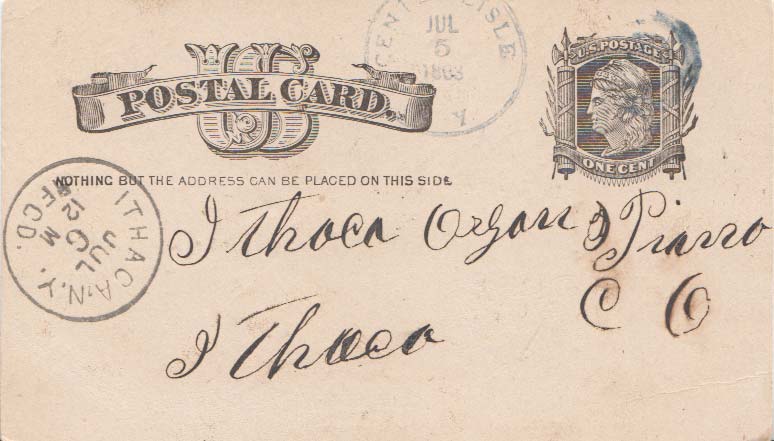 US
POSTAL CARD.
CENT LISLE
JUL
5
Y
U.S. POSTAGE
ONE CENT
NOTHING BUT THE ADDRESS CAN BE PLACED ON THIS SIDE
ITHACA, N.Y.
JUL
6
12 M
REC'D.
Ithaca Organ & Piano
CO
Ithaca